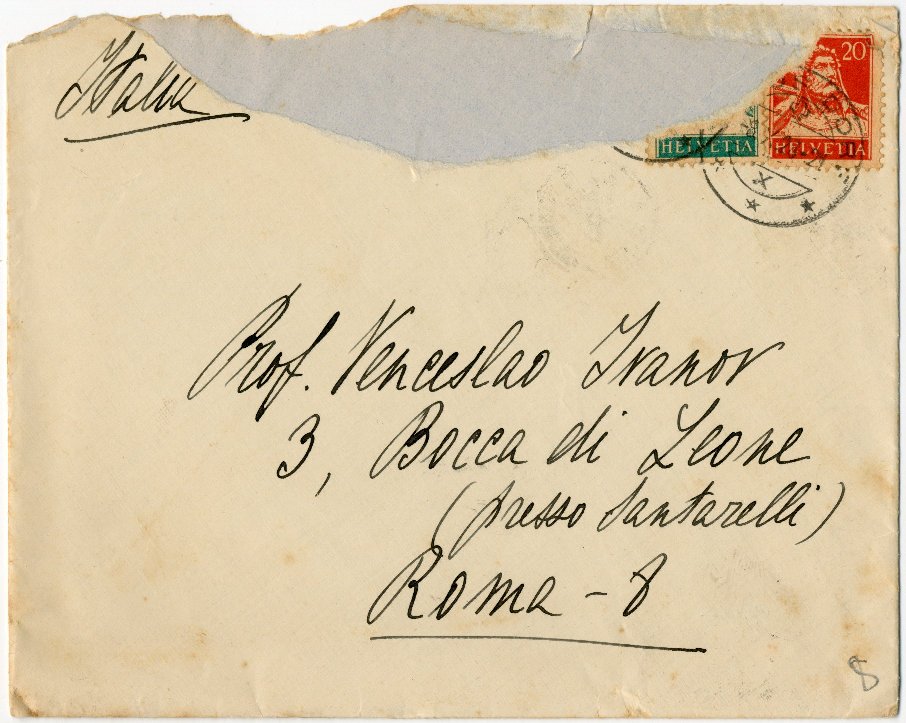 Italia
20
HELVETIA HELVETIA
Prof. Venceslao Ivanov
3, Bocca di Leone
(presso Santarelli)
Roma - 8
8